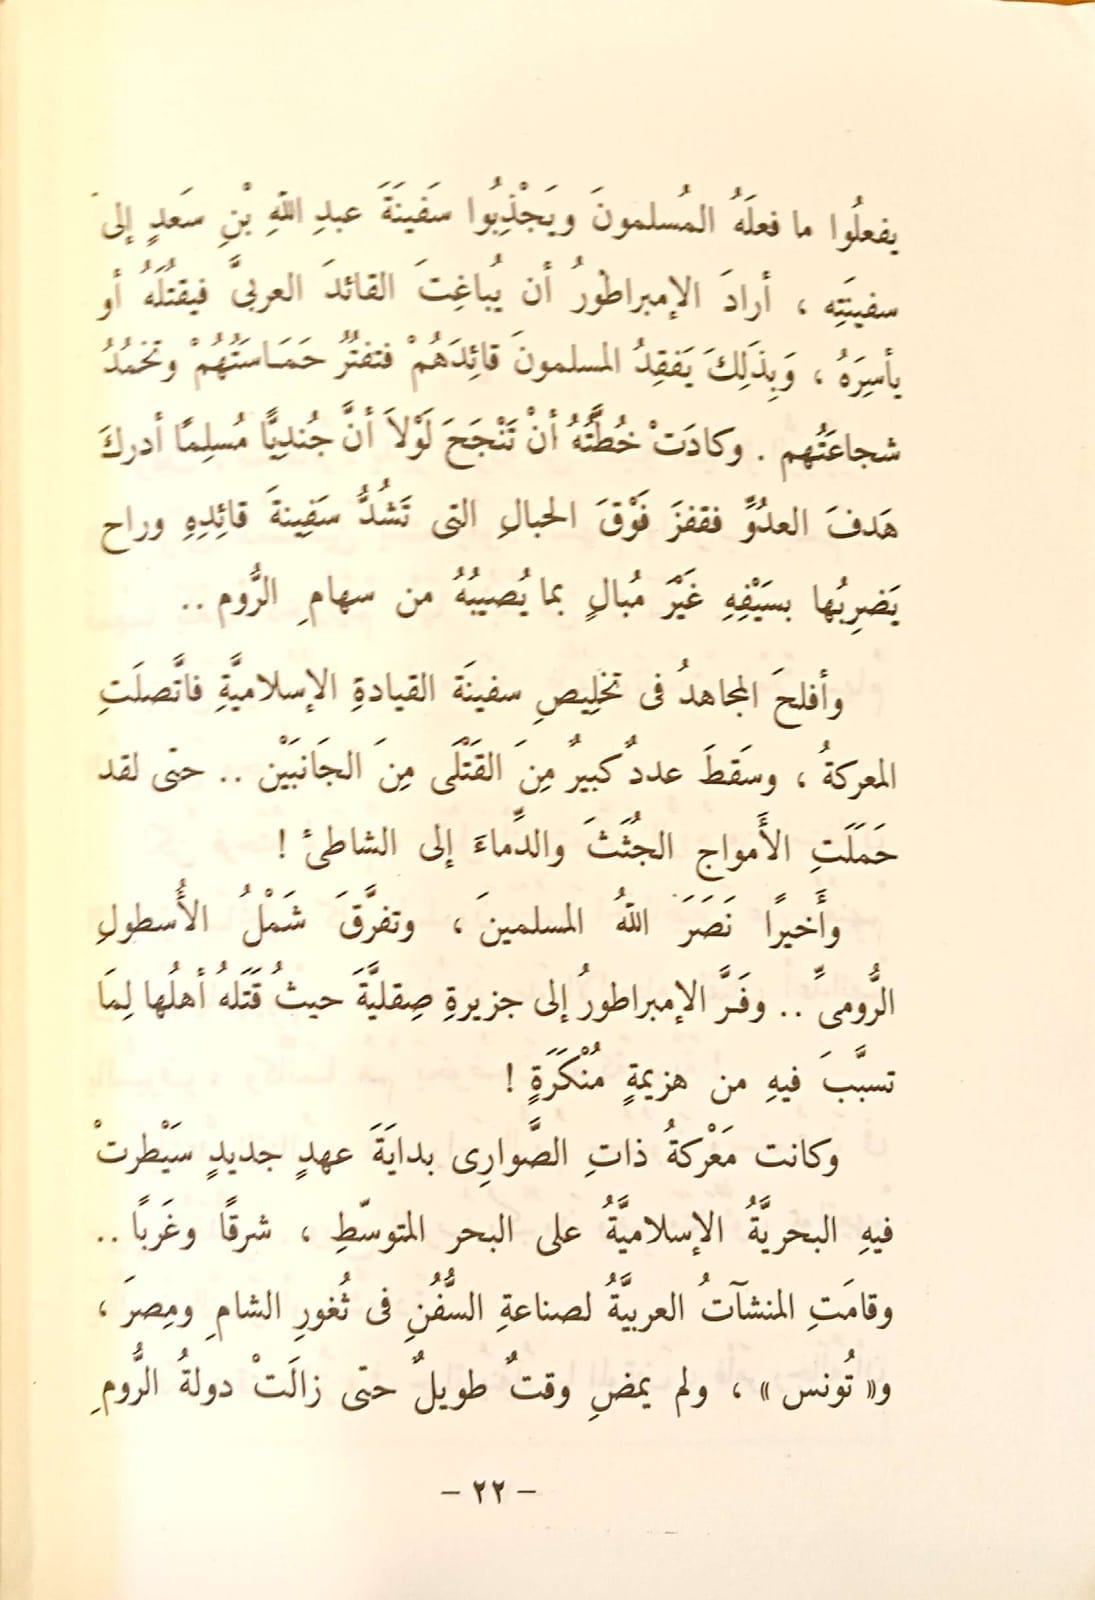 يفعلُوا ما فعلَهُ المُسلمونَ ويَجْذِبُوا سَفينَةَ عبدِ اللهِ بْنِ سَعدٍ إلىَ
سفينَتِه ، أرادَ الإمبراطورُ أن يُباغِتَ القائدَ العربىَّ فيقتُلَهُ أو
يأسِرَهُ ، وَبِذَلِكَ يَفقِدُ المسلمونَ قائِدَهُمْ فتفتُرُ حَمَاسَتُهُمْ وتخمُدُ
شجاعَتُهم . وكادَتْ خُطَّتُهُ أنْ تَنْجَحَ لَوْلاَ أنَّ جُنديًّا مُسلِمًا أدركَ
هَدفَ العدُوِّ فقفزَ فَوْقَ الحبالِ التى تَشُدُّ سَفِينةَ قائِدِهِ وراح
يَضرِبُها بسَيْفِهِ غَيْرَ مُبالٍ بما يُصيبُهُ من سهامِ الرُّوم ..
وأفلحَ المجاهدُ فى تخلِيصِ سفينَة القيادةِ الإسلاميَّةِ فاتَّصلَتِ
المعركةُ ، وسَقطَ عددٌ كبيرٌ مِنَ القَتْلَى مِنَ الجَانبَيْن .. حتى لقد
حَمَلَتِ الأَمواج الجُثَثَ والدِّماءَ إلى الشاطئ !
وأَخيرًا نَصَرَ اللهُ المسلمينَ ، وتفرَّقَ شَمْلُ الأُسطولِ
الرُّومىِّ .. وفَرَّ الإمبراطورُ إلى جزيرةِ صِقليَّةَ حيثُ قَتَلَهُ أهلُها لِمَا
تسبَّبَ فيهِ من هزيمةٍ مُنْكَرَةٍ !
وكانت مَعْركةُ ذاتِ الصَّوارِى بدايَةَ عهدٍ جديدٍ سَيْطرتْ
فيهِ البحريَّةُ الإسلاميَّةُ على البحر المتوسّطِ ، شرقًا وغَربًا ..
وقامَتِ المنشآتُ العربيَّةُ لصناعةِ السُّفُنِ فى ثُغورِ الشامِ ومِصرَ ،
و« تُونس » ، ولم يمضِ وقتٌ طويلٌ حتى زالَتْ دولةُ الرُّومِ
- ٢٢ -